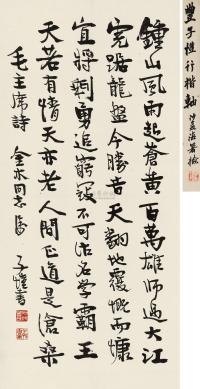 鍾山風雨起蒼黃百萬雄師過大江
虎踞龍盤今勝昔天翻地覆慨而慷
宜將剩勇追窮寇不可沽名學霸王
天若有情天亦老人間正道是滄桑
毛主席詩 同志屬 子愷書
豐子愷行楷軸 沙孟海署檢